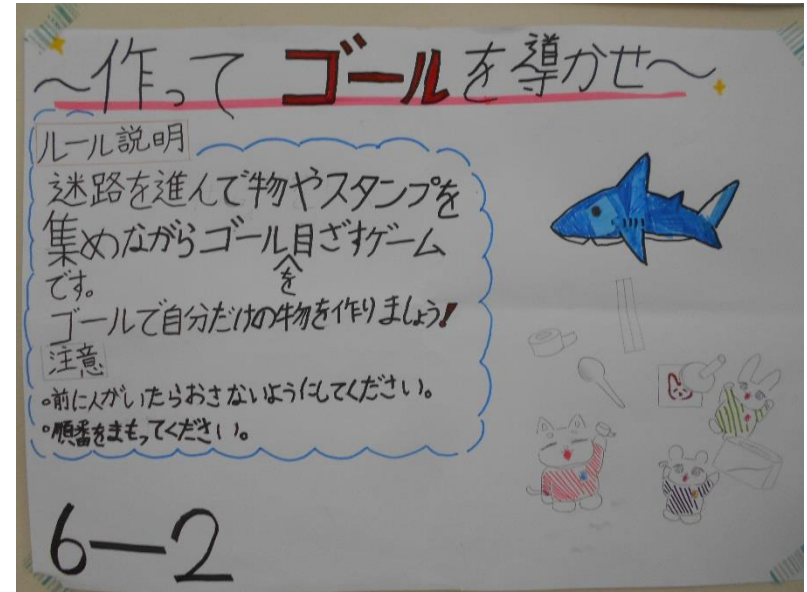 〜作って ゴールを導かせ〜
ルール説明
迷路を進んで物やスタンプを
集めながらゴールを目ざすゲーム
です。
ゴールで自分だけの物を作りましょう!
注意
。前に人がいたらおさないようにしてください。
。順番をまもってください。
6-2